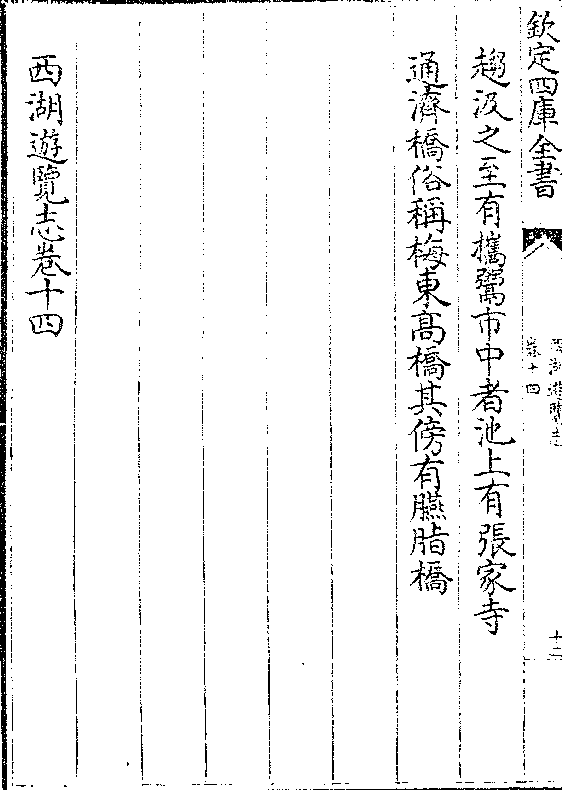 欽定四庫全書
西湖遊覽志
卷十四
十二
趨汲之至有攜鬻市中者池上有張家寺
通濟橋俗稱梅東高橋其傍有臙脂橋
西湖遊覽志卷十四